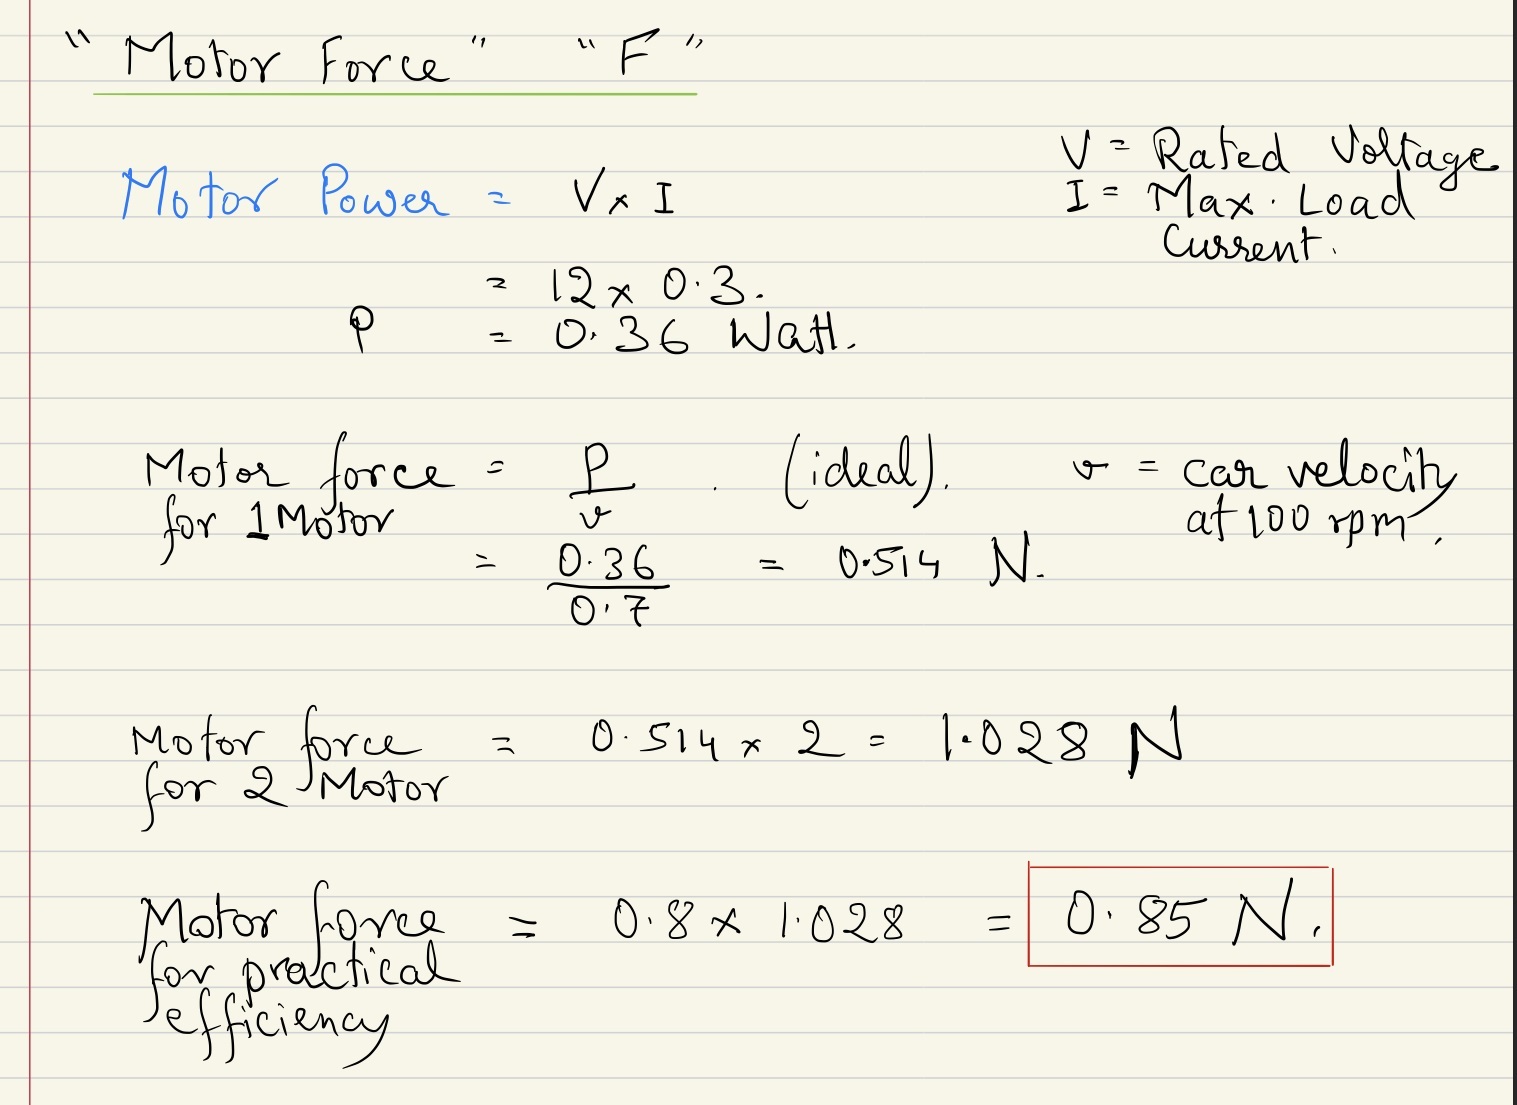 "Motor Force" "F"
V = Rated Voltage
Motor Power = V x I
I = Max. Load
Current.
= 12 x 0.3.
P = 0.36 Watt.
Motor force = P/v . (ideal). v = car velocity
for 1 Motor at 100 rpm.
= 0.36/0.7 = 0.514 N.
Motor force = 0.514 x 2 = 1.028 N
for 2 Motor
Motor force = 0.8 x 1.028 = 0.85 N.
for practical
efficiency